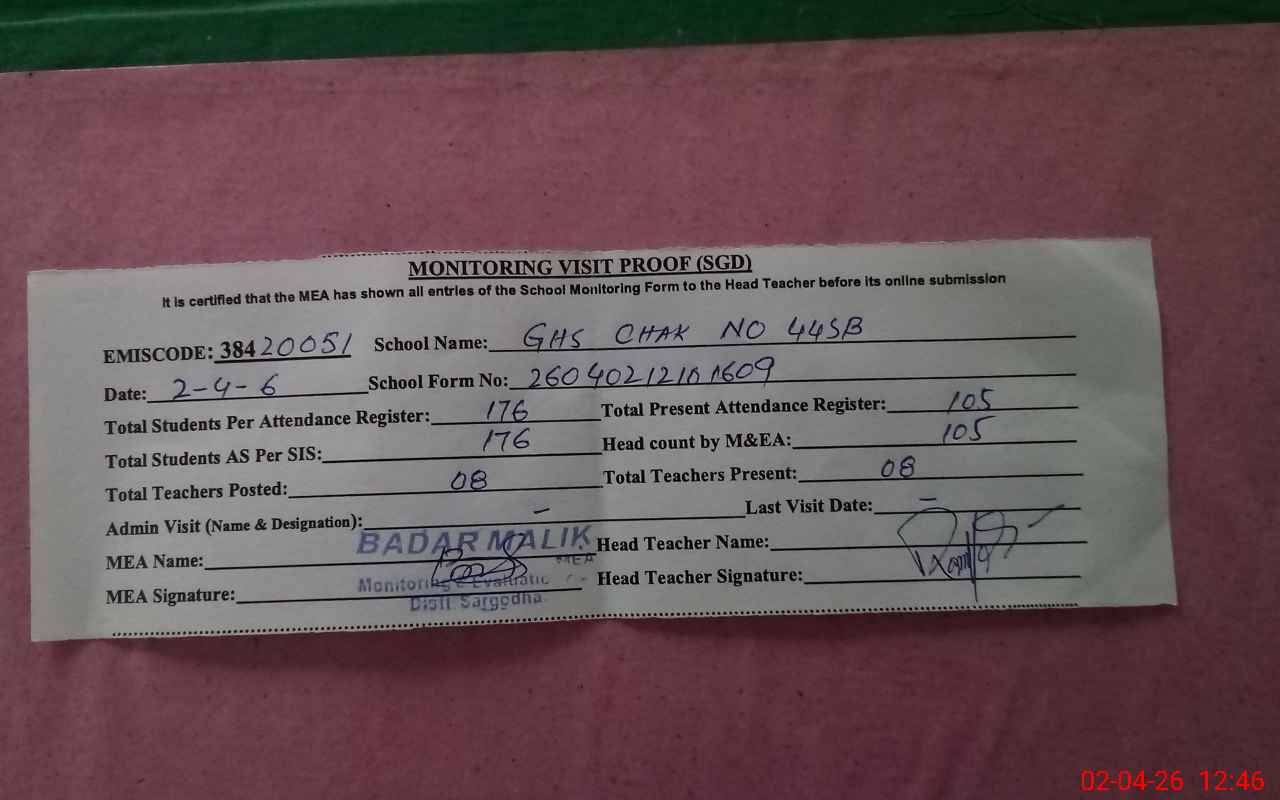 MONITORING VISIT PROOF (SGD)
It is certified that the MEA has shown all entries of the School Monitoring Form to the Head Teacher before its online submission
EMISCODE: 38420051 School Name: GHS CHAK NO 44SB
Date: 2-4-6 School Form No:
Total Students Per Attendance Register: 176 Total Present Attendance Register: 105
Total Students AS Per SIS: 176 Head count by M&EA: 105
Total Teachers Posted: 08 Total Teachers Present: 08
Admin Visit (Name & Designation): - Last Visit Date: -
MEA Name: BADAR MALIK Head Teacher Name:
MEA
MEA Signature: Head Teacher Signature:
Monitoring & Evaluatio
Distt Sargodha
02-04-26 12:46